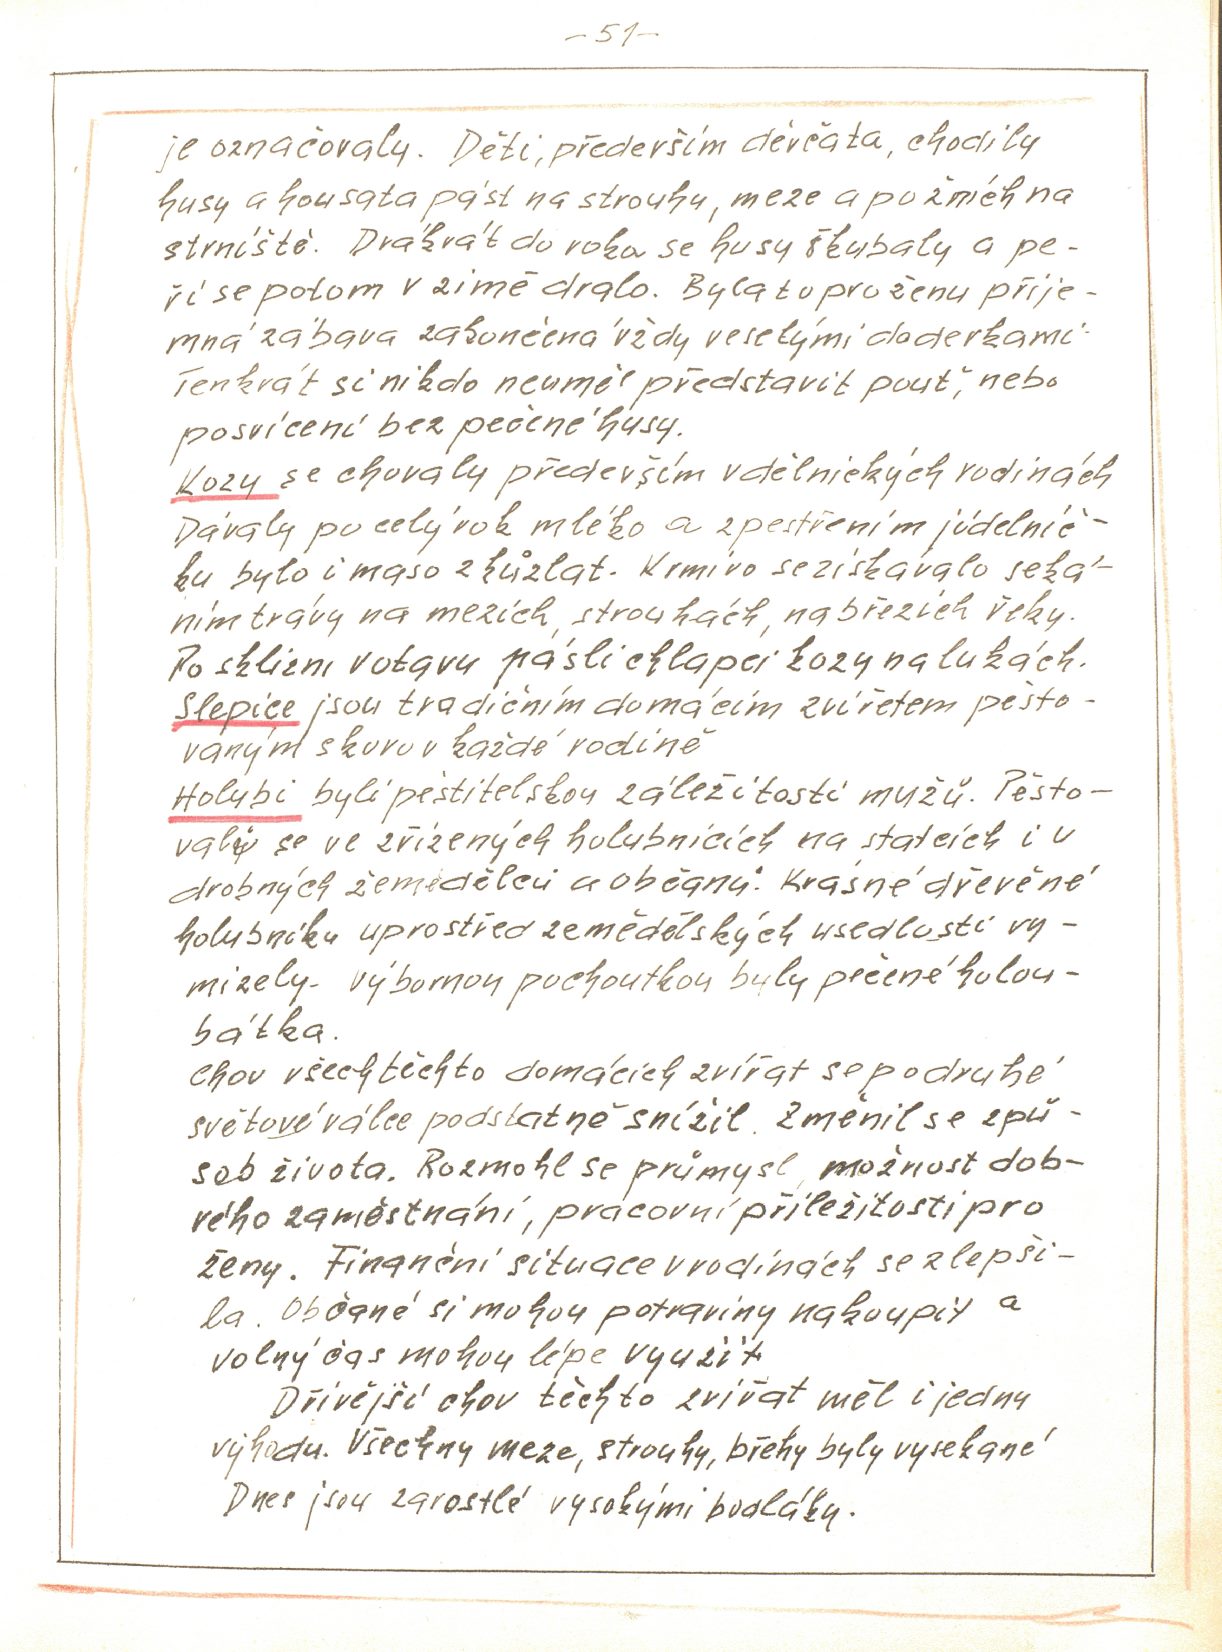 -51-
je označovaly. Děti, především děvčata, chodily
husy a housata pást na strouhu, meze a po žních na
strniště. Dvákrát do roka se husy škubaly a pe-
ří se potom v zimě dralo. Byla to pro ženu příje-
mná zábava zakončená vždy veselými doderkami.
Tenkrát si nikdo neuměl představit pouť, nebo
posvícení bez pečené husy.
Kozy se chovaly především v dělnických rodinách
Dávaly po celý rok mléko a zpestřením jídelníč-
ku bylo i maso z kůzlat. Krmivo se získávalo seká-
ním trávy na mezích, strouhách, na březích řeky.
Po sklizni votavu pásli chlapci kozy na lukách.
Slepice jsou tradičním domácím zvířetem pěsto-
vaným skoro v každé rodině
Holubi byli pěstitelskou záležitostí mužů. Pěsto-
valy se ve zřízených holubnicích na statcích i u
drobných zemědělců a občanů. Krásné dřevěné
holubníky uprostřed zemědělských usedlostí vy-
mizely. Výbornou pochoutkou byly pečené holou-
bátka.
Chov všech těchto domácích zvířat se po druhé
světové válce podstatně snížil. Změnil se způ-
sob života. Rozmohl se průmysl, možnost dob-
rého zaměstnání, pracovní příležitosti pro
ženy. Finanční situace v rodinách se zlepši-
la. Občané si mohou potraviny nakoupit a
volný čas mohou lépe využít
Dřívější chov těchto zvířat měl i jednu
výhodu. Všechny meze, strouhy, břehy byly vysekané
Dnes jsou zarostlé vysokými bodláky.